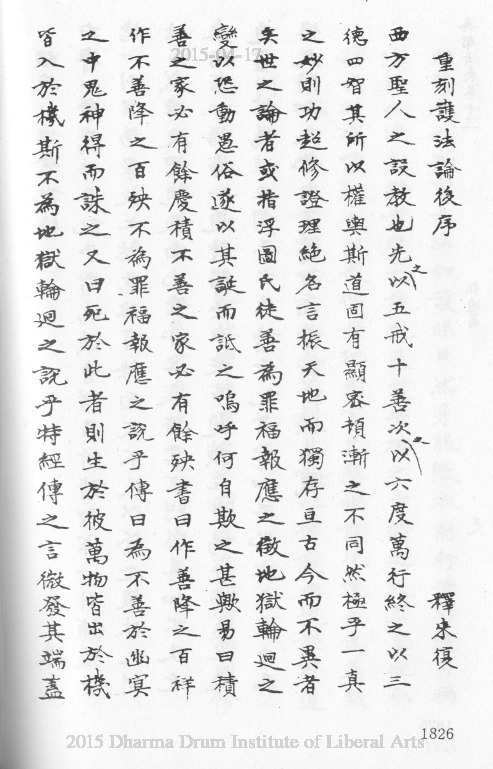 重刻護法論後序
釋來復
西方聖人之設教也先之以五戒十善次之以六度萬行終之以三
德四智其所以權輿斯道固有顯密頓漸之不同然極乎一真
之妙則功超修證理絕名言振天地而獨存亘古今而不異者
矣世之論者或指浮圖氏徒善為罪福報應之徵地獄輪迴之
變以恐動愚俗遂以其誕而詆之嗚呼何自欺之甚歟易曰積
善之家必有餘慶積不善之家必有餘殃書曰作善降之百祥
作不善降之百殃不為罪福報應之說乎傳曰為不善於幽冥
之中鬼神得而誅之又曰死於此者則生於彼萬物皆出於機
皆入於機斯不為地獄輪迴之說乎特經傳之言微發其端蓋
1826
2015-04-17
2015 Dharma Drum Institute of Liberal Arts